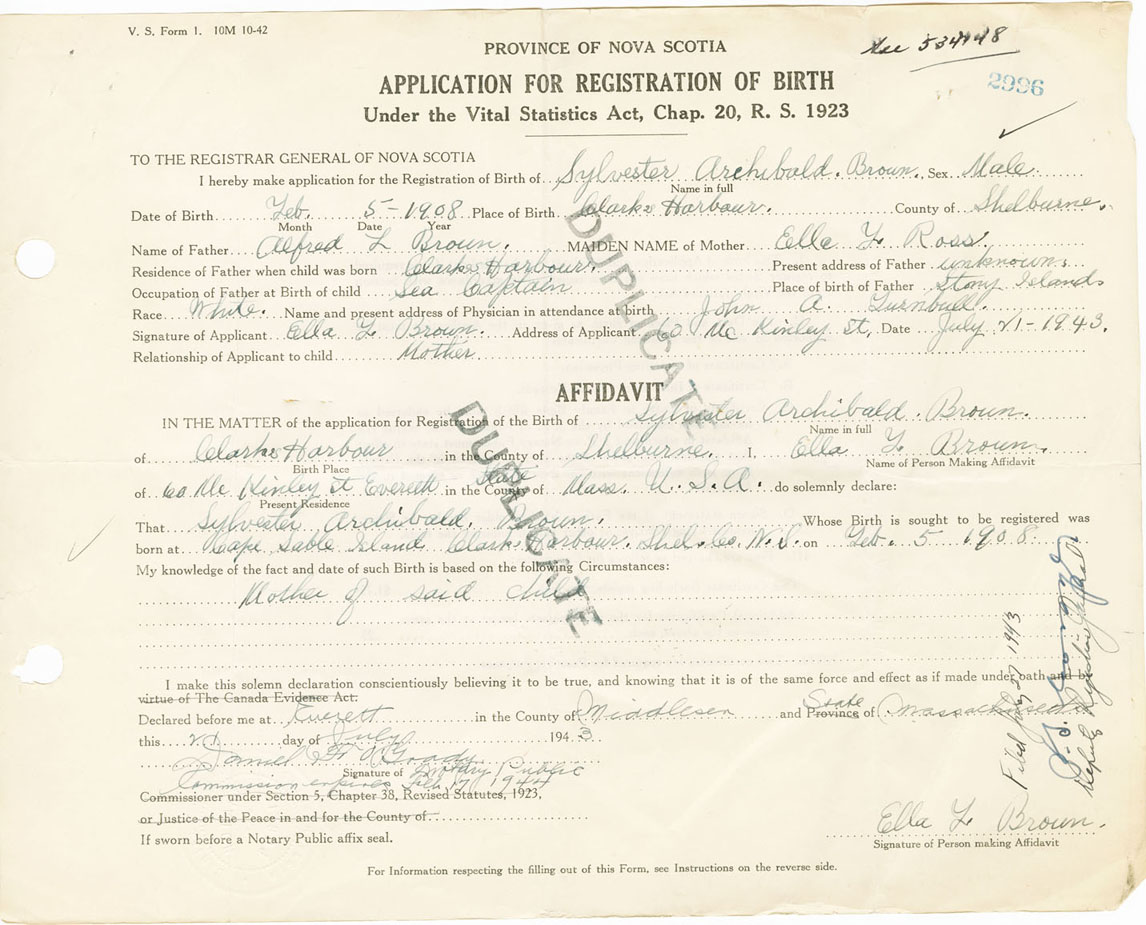 V. S. Form 1. 10M 10-42
See 534148
PROVINCE OF NOVA SCOTIA
2996
APPLICATION FOR REGISTRATION OF BIRTH
Under the Vital Statistics Act, Chap. 20, R. S. 1923
TO THE REGISTRAR GENERAL OF NOVA SCOTIA
I hereby make application for the Registration of Birth of Sylvester Archibald. Brown. Sex Male
Name in full
Date of Birth Feb. 5-1908 Place of Birth Clarks Harbour. County of Shelburne.
Month Date Year
Name of Father Alfred L Brown. MAIDEN NAME of Mother Ella F. Ross.
Residence of Father when child was born Clarks Harbour. Present address of Father unknown.
Occupation of Father at Birth of child Sea Captain Place of birth of Father Stony Island
Race White. Name and present address of Physician in attendance at birth John A. Turnbull.
Signature of Applicant Ella F. Brown. Address of Applicant 60 Mc Kinley St, Date July 21-1943.
Relationship of Applicant to child Mother
DUPLICATE
AFFIDAVIT
IN THE MATTER of the application for Registration of the Birth of Sylvester Archibald. Brown.
Name in full
of Clarks Harbour in the County of Shelburne. I, Ella F. Brown.
Birth Place Name of Person Making Affidavit
State
of 60 Mc Kinley St Everett in the County of Mass. U.S.A. do solemnly declare:
Present Residence
That Sylvester Archibald. Brown. Whose Birth is sought to be registered was
born at Cape Sable Island Clarks Harbour. Shel. Co. N.S. on Feb. 5 1908.
My knowledge of the fact and date of such Birth is based on the following Circumstances:
Mother of said child
DUPLICATE
I make this solemn declaration conscientiously believing it to be true, and knowing that it is of the same force and effect as if made under oath and by
virtue of The Canada Evidence Act.
State
Declared before me at Everett in the County of Middlesex and Province of Massachusetts
this 21 day of July 1943
Daniel F. O'Grady
Signature of Notary Public
Commission expires Feb. 17, 1944
Commissioner under Section 5, Chapter 38, Revised Statutes, 1923,
or Justice of the Peace in and for the County of
If sworn before a Notary Public affix seal.
Ella F. Brown.
Signature of Person making Affidavit
For Information respecting the filling out of this Form, see Instructions on the reverse side.
Filed July 27 1943
Deputy Registrar General